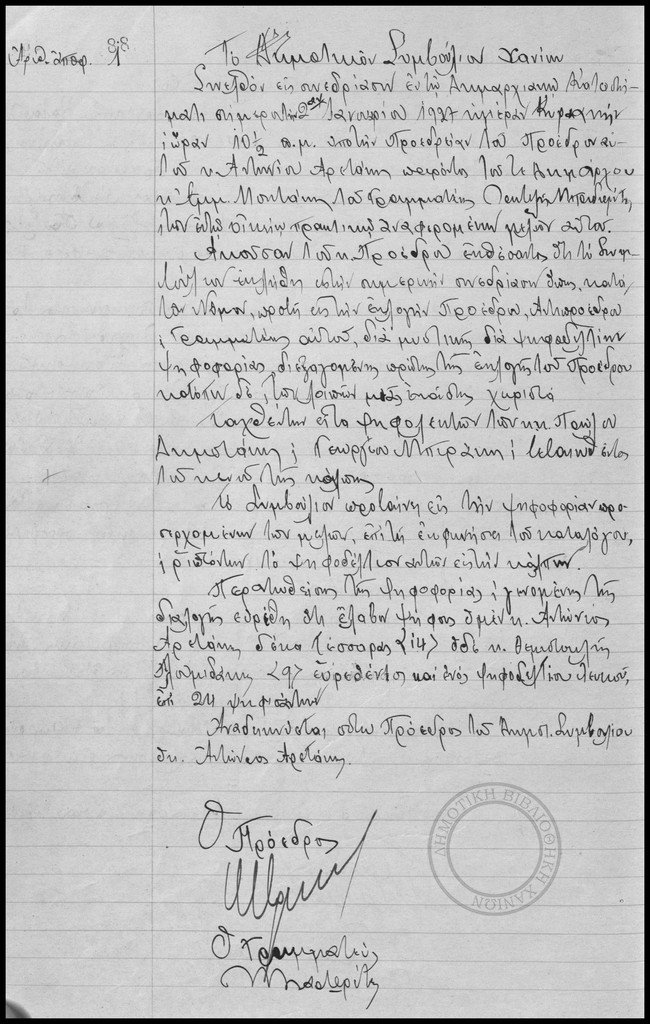 Αριθ. αποφ. 1
Το Δημοτικόν Συμβούλιον Χανίων
Συνελθόν εις συνεδρίασιν εν τω Δημαρχιακώ Καταστή-
ματι σήμερον την 2αν Ιανουαρίου 1927 ημέραν Κυριακήν
και ώραν 10 1/2 π.μ. υπό την Προεδρείαν του Προέδρου αυ-
του κ. Αντωνίου Αρετάκη παρόντος του τε Δημάρχου
κ. Εμμ. Μουντάκη, του Γραμματέως
και των εν τω οικείω πρακτικώ αναφερομένων μελών αυτού.
Ακούσαν του κ. Προέδρου εκθέσαντος ότι το Συμ-
βούλιον εκλήθη εις την σημερινήν συνεδρίασιν όπως, κατά
τον Νόμον, προβή εις την εκλογήν Προέδρου, Αντιπροέδρου
και Γραμματέως αυτού, διά μυστικής διά ψηφοδελτίων
ψηφοφορίας, διεξαγομένης πρώτης της εκλογής του Προέδρου
κατόπιν δε και των λοιπών μιάς εκάστης χωριστά
ταχθέντων εις το ψηφολεκτών των κ.κ. Παύλου
Δημοτάκη και Γεωργίου Μπιράκη και
του κενού της κάλπης
Το Συμβούλιον προβαίνει εις την ψηφοφορίαν προ-
σερχομένων των μελών, επί τη εκφωνήσει του καταλόγου,
και ριπτόντων το ψηφοδέλτιον αυτών εις την κάλπην.
Περατωθείσης της ψηφοφορίας και γενομένης της
διαλογής ευρέθη ότι έλαβον ψήφους ο μεν κ. Αντώνιος
Αρετάκης δέκα τέσσαρας <14> ο δε κ. Θεμιστοκλής
<9> ευρεθέντος και ενός ψηφοδελτίου λευκού,
επί 24 ψηφισάντων
Αναδεικνύεται, όθεν Πρόεδρος του Δημοτ. Συμβουλίου
ο κ. Αντώνιος Αρετάκης.
Ο Πρόεδρος
Ο Γραμματεύς
ΔΗΜΟΤΙΚΗ ΒΙΒΛΙΟΘΗΚΗ ΧΑΝΙΩΝ